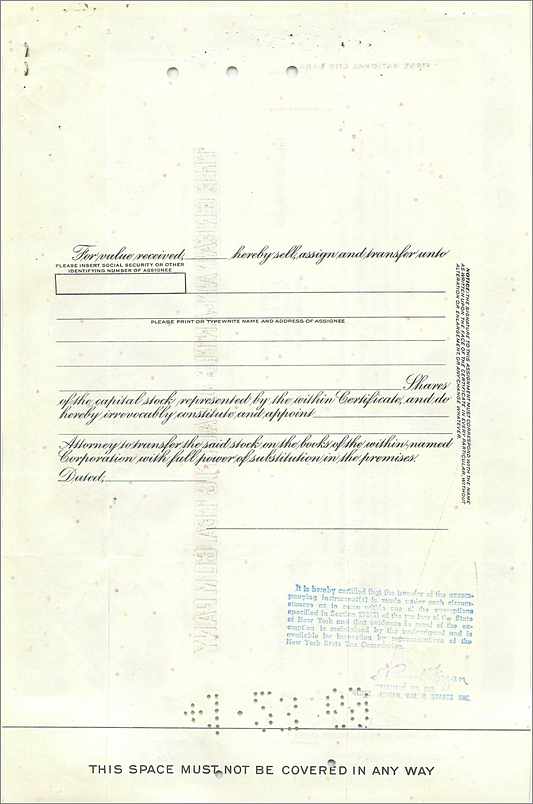 For value received, hereby sell, assign and transfer unto
PLEASE INSERT SOCIAL SECURITY OR OTHER
IDENTIFYING NUMBER OF ASSIGNEE
PLEASE PRINT OR TYPEWRITE NAME AND ADDRESS OF ASSIGNEE
Shares
of the capital stock represented by the within Certificate, and do
hereby irrevocably constitute and appoint
Attorney to transfer the said stock on the books of the within-named
Corporation with full power of substitution in the premises.
Dated,
NOTICE: THE SIGNATURE TO THIS ASSIGNMENT MUST CORRESPOND WITH THE NAME
AS WRITTEN UPON THE FACE OF THE CERTIFICATE IN EVERY PARTICULAR, WITHOUT
ALTERATION OR ENLARGEMENT OR ANY CHANGE WHATEVER.
It is hereby certified that the transfer of the accom-
panying instrument(s) is made under such circum-
stances as to come within one of the exemptions
specified in Section of the tax law of the State
of New York and that evidence in proof of the ex-
emption is maintained by the undersigned and is
available for inspection by representatives of the
New York State Tax Commission.
THIS SPACE MUST NOT BE COVERED IN ANY WAY